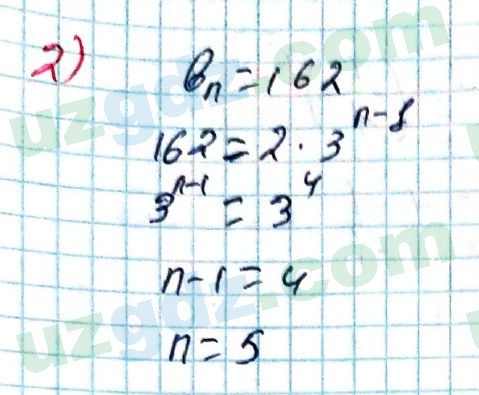 2) bₙ = 162
162 = 2 · 3ⁿ⁻¹
3ⁿ⁻¹ = 3⁴
n-1 = 4
n = 5
uzgdz.com
uzgdz.com